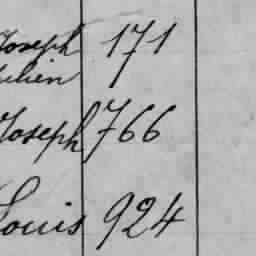 Joseph 171
Julien
Joseph 766
Louis 924